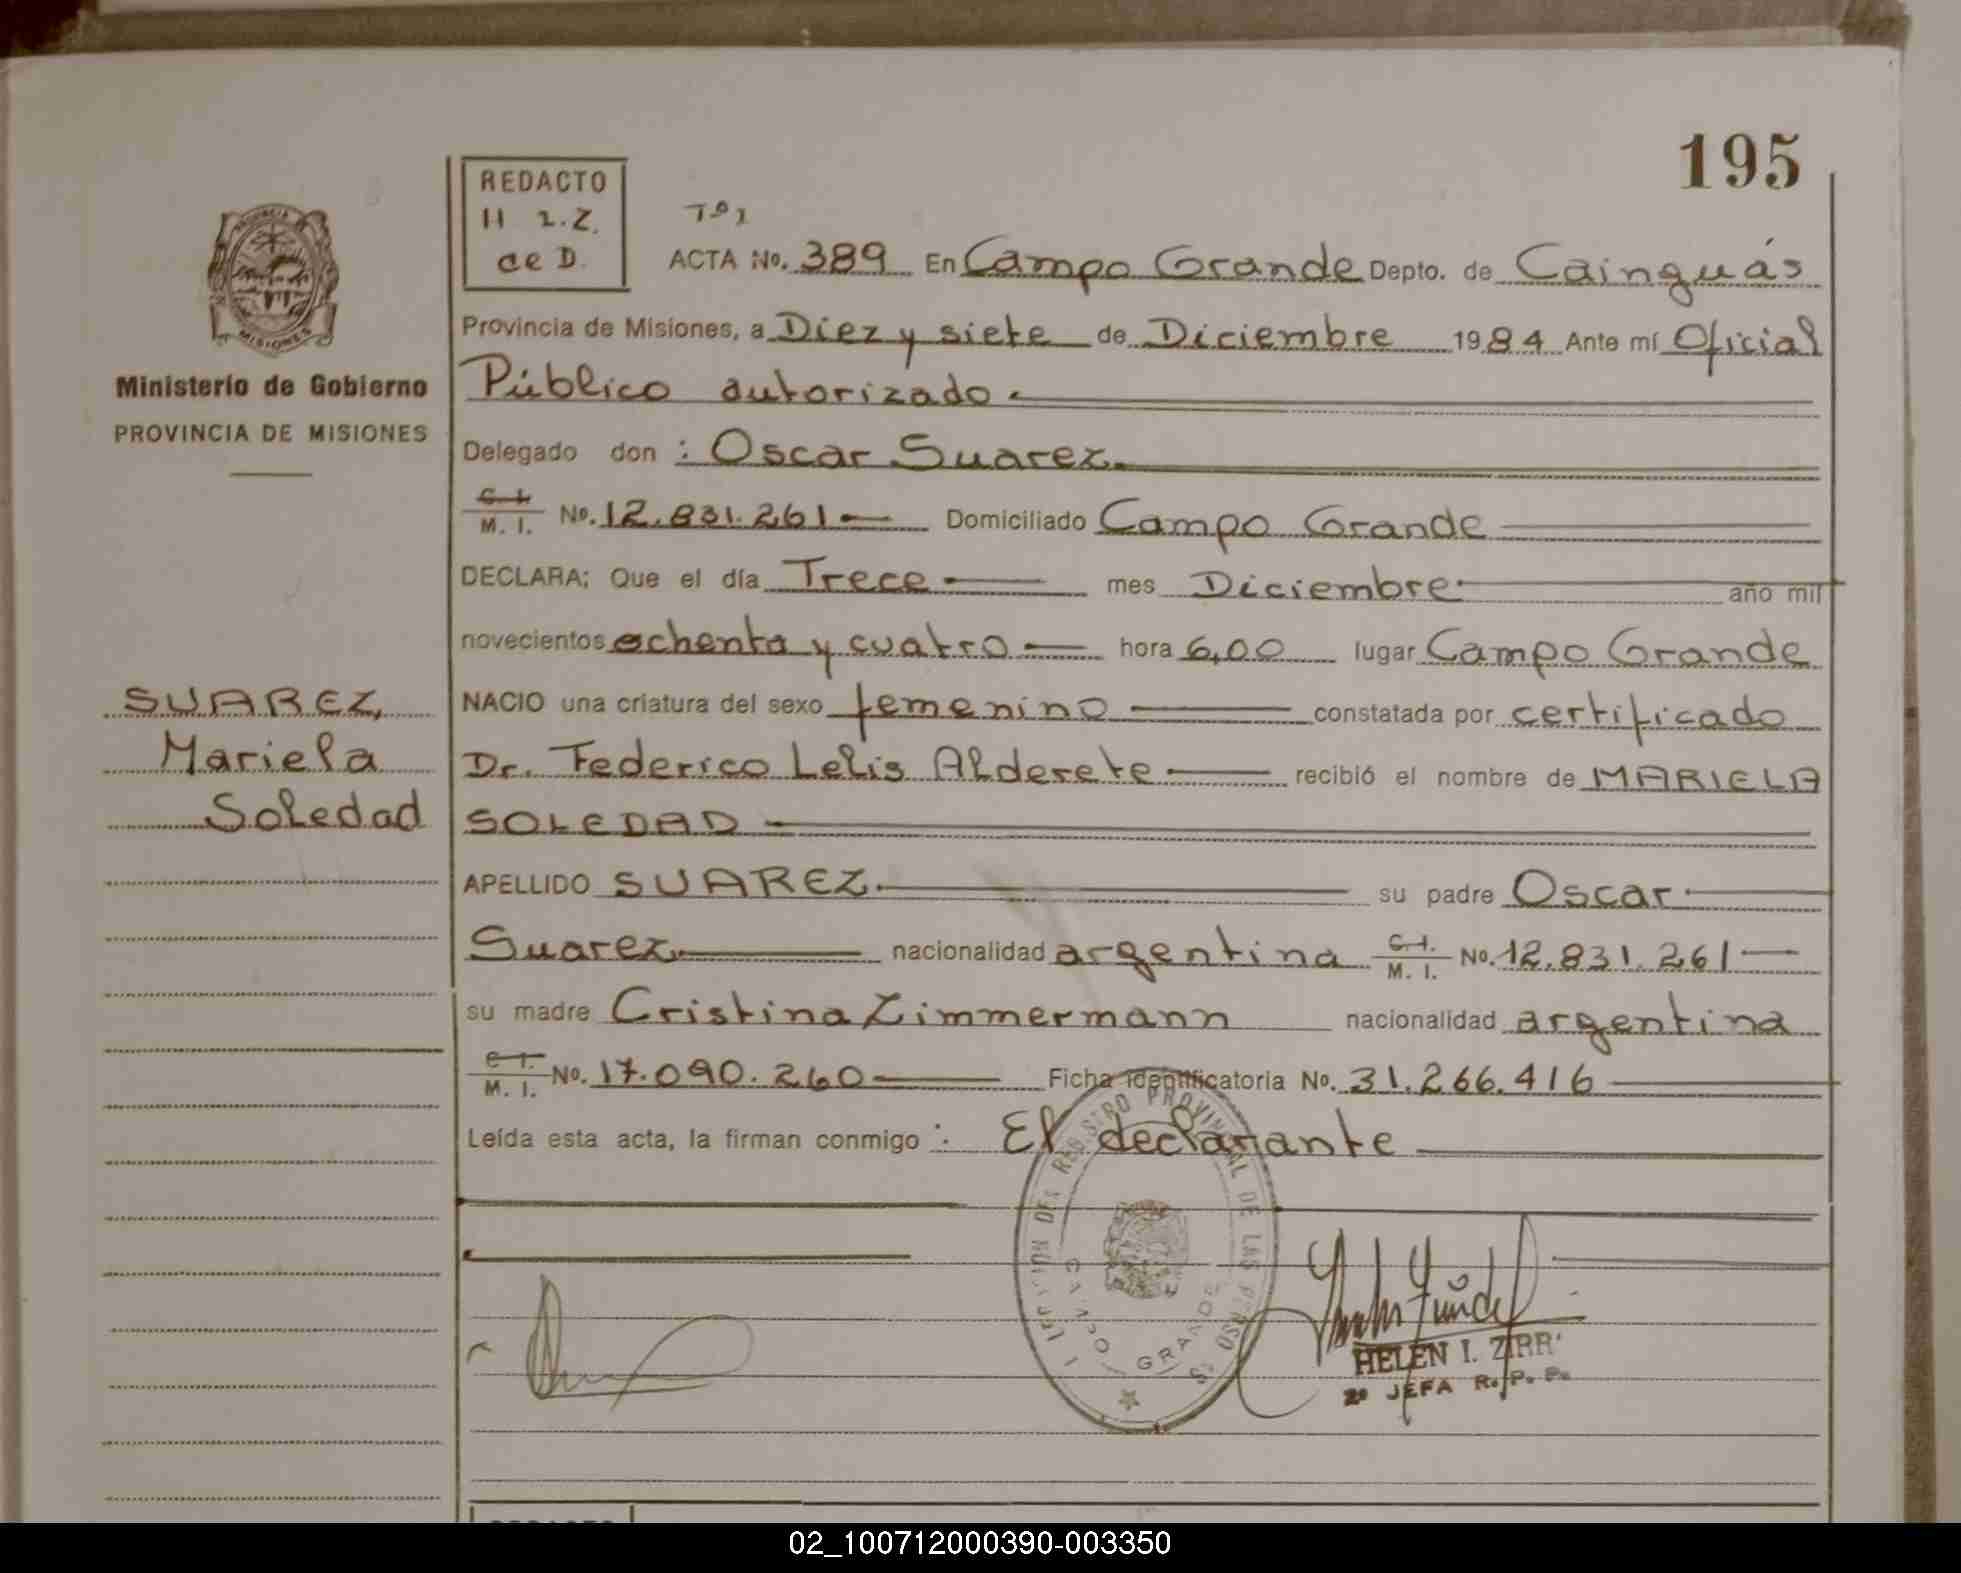 195
REDACTO
H 2.Z.
de D.
Tº1
ACTA No. 389 En Campo Grande Depto. de Cainguás
MISIONES
Ministerio de Gobierno
PROVINCIA DE MISIONES
Provincia de Misiones, a Diez y siete de Diciembre 1984 Ante mí Oficial
Público autorizado.
Delegado don : Oscar Suarez.
C. I.
M. I. No. 12.831.261 Domiciliado Campo Grande
DECLARA; Que el día Trece mes Diciembre año mil
novecientos ochenta y cuatro hora 6,00 lugar Campo Grande
SUAREZ,
Mariela
Soledad
NACIO una criatura del sexo femenino constatada por certificado
Dr. Federico Lelis Alderete recibió el nombre de MARIELA
SOLEDAD
APELLIDO SUAREZ su padre Oscar
Suarez nacionalidad argentina C. I.
M. I. No. 12.831.261
su madre Cristina Zimmermann nacionalidad argentina
C. I.
M. I. No. 17.090.260 Ficha identificatoria No. 31.266.416
Leída esta acta, la firman conmigo : El declarante
REGISTRO PROVINCIAL DE LAS PERSONAS
CAMPO GRANDE
HELEN I. ZIRR
2º JEFA R. P. P.
02_100712000390-003350